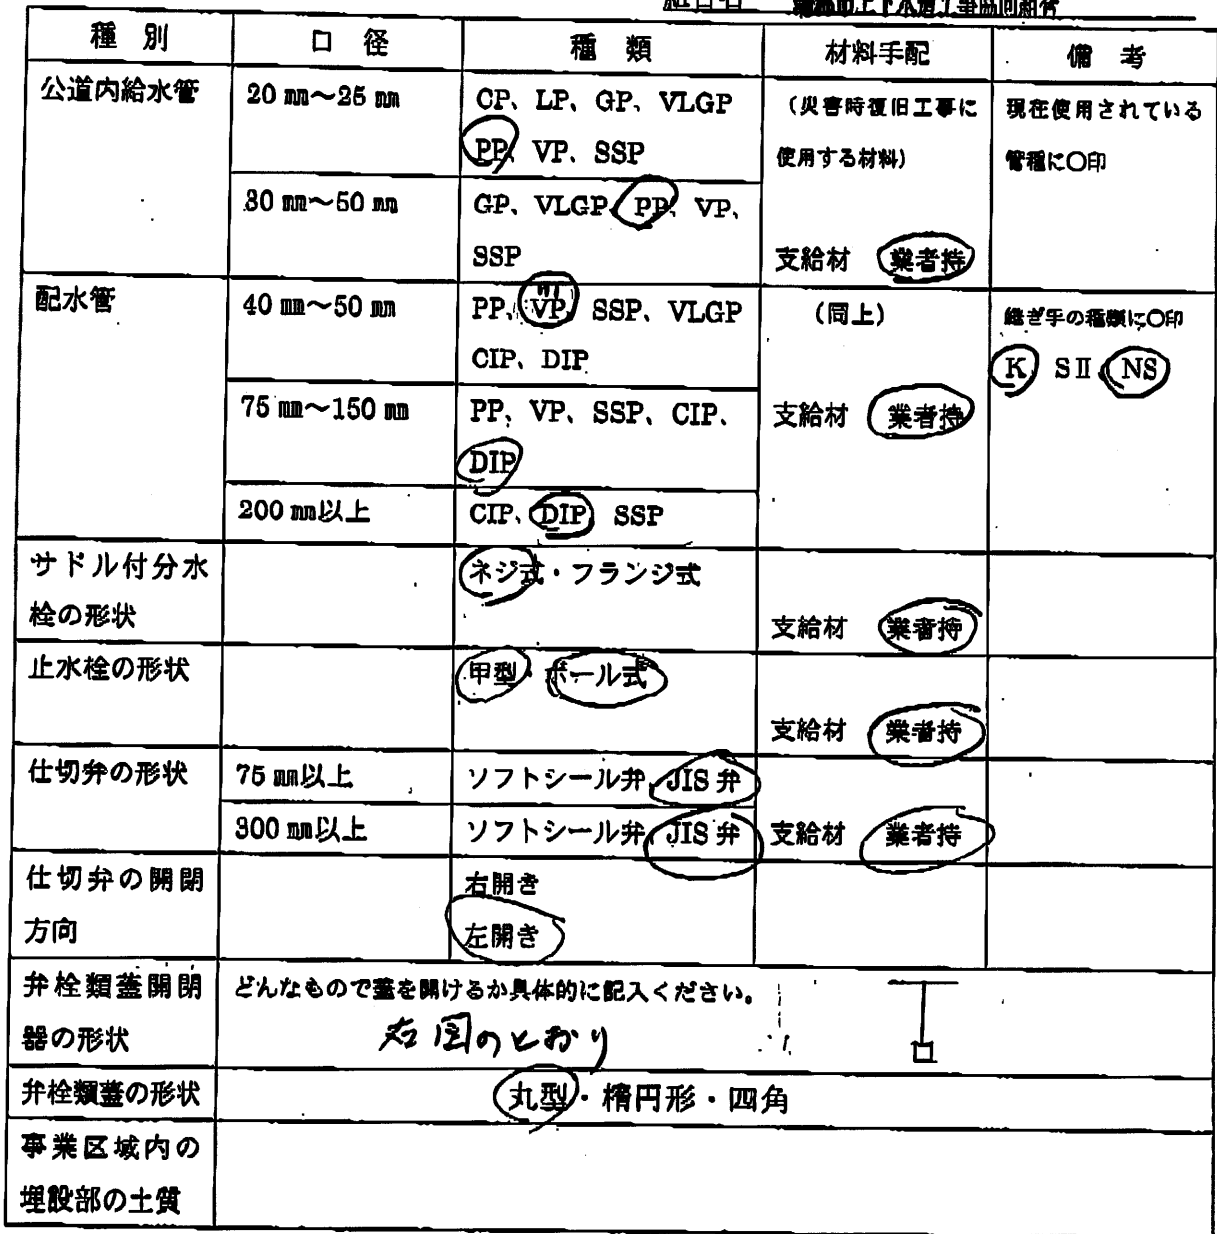 組合名
種別 口径 種類 材料手配 備考
公道内給水管 20 ㎜～25 ㎜ CP、LP、GP、VLGP （災害時復旧工事に 現在使用されている
PP、VP、SSP 使用する材料） 管種に〇印
30 ㎜～50 ㎜ GP、VLGP、PP、VP、
SSP 支給材 業者持
配水管 40 ㎜～50 ㎜ PP、VP、SSP、VLGP （同上） 継ぎ手の種類に〇印
CIP、DIP K、SⅡ、NS
75 ㎜～150 ㎜ PP、VP、SSP、CIP、 支給材 業者持
DIP
200 ㎜以上 CIP、DIP、SSP
サドル付分水 ネジ式・フランジ式
栓の形状 支給材 業者持
止水栓の形状 甲型・ボール式
支給材 業者持
仕切弁の形状 75 ㎜以上 ソフトシール弁、JIS 弁
300 ㎜以上 ソフトシール弁、JIS 弁 支給材 業者持
仕切弁の開閉 右開き
方向 左開き
弁栓類蓋開閉 どんなもので蓋を開けるか具体的に記入ください。
器の形状 右図のとおり
弁栓類蓋の形状 丸型・楕円形・四角
事業区域内の
埋設部の土質